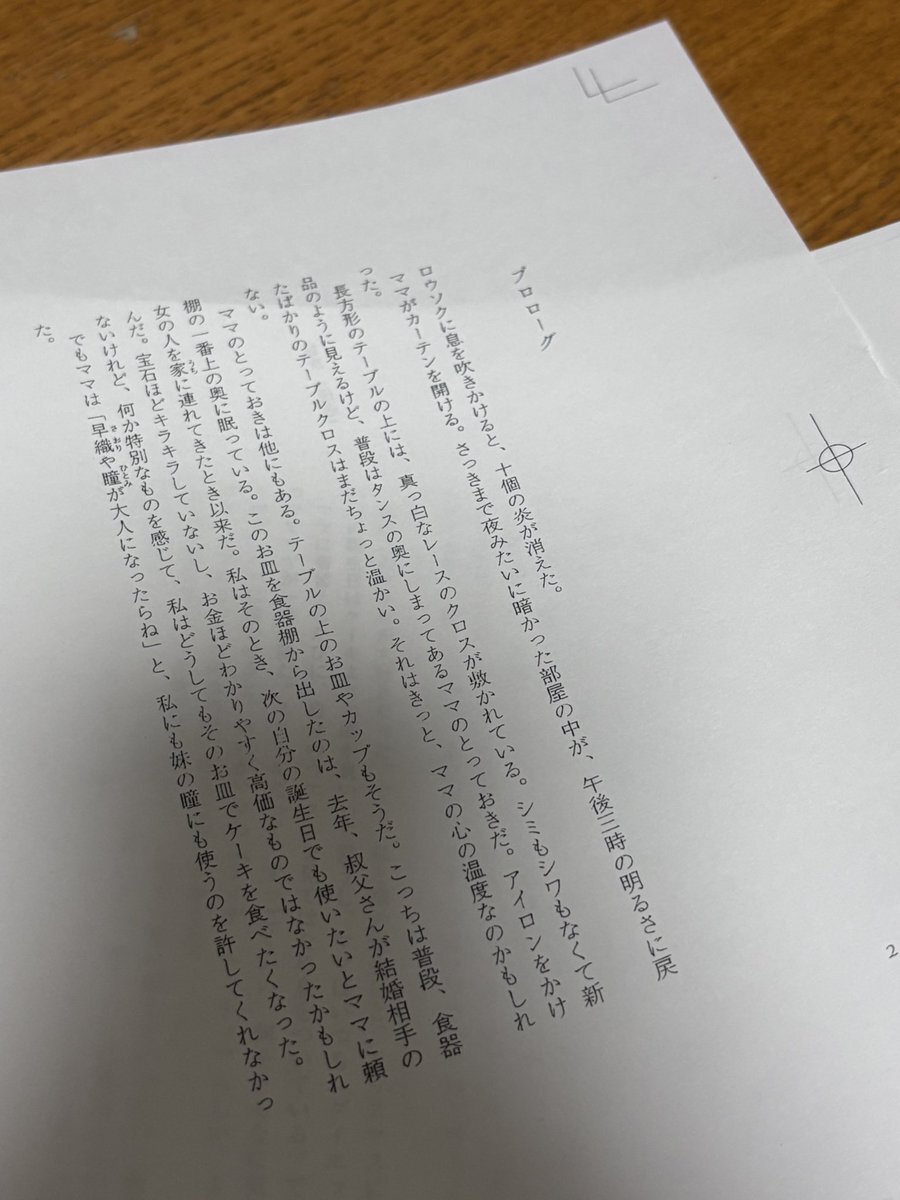 プロローグ
ロウソクに息を吹きかけると、十個の炎が消えた。
ママがカーテンを開ける。さっきまで夜みたいに暗かった部屋の中が、午後三時の明るさに戻
った。
長方形のテーブルの上には、真っ白なレースのクロスが敷かれている。シミもシワもなくて新
品のように見えるけど、普段はタンスの奥にしまってあるママのとっておきだ。アイロンをかけ
たばかりのテーブルクロスはまだちょっと温かい。それはきっと、ママの心の温度なのかもしれ
ない。
ママのとっておきは他にもある。テーブルの上のお皿やカップもそうだ。こっちは普段、食器
棚の一番上の奥に眠っている。このお皿を食器棚から出したのは、去年、叔父さんが結婚相手の
女の人を家に連れてきたとき以来だ。私はそのとき、次の自分の誕生日でも使いたいとママに頼
んだ。宝石ほどキラキラしていないし、お金ほどわかりやすく高価なものではなかったかもしれ
ないけれど、何か特別なものを感じて、私はどうしてもそのお皿でケーキを食べたくなった。
でもママは「早織や瞳が大人になったらね」と、私にも妹の瞳にも使うのを許してくれなかっ
た。
2